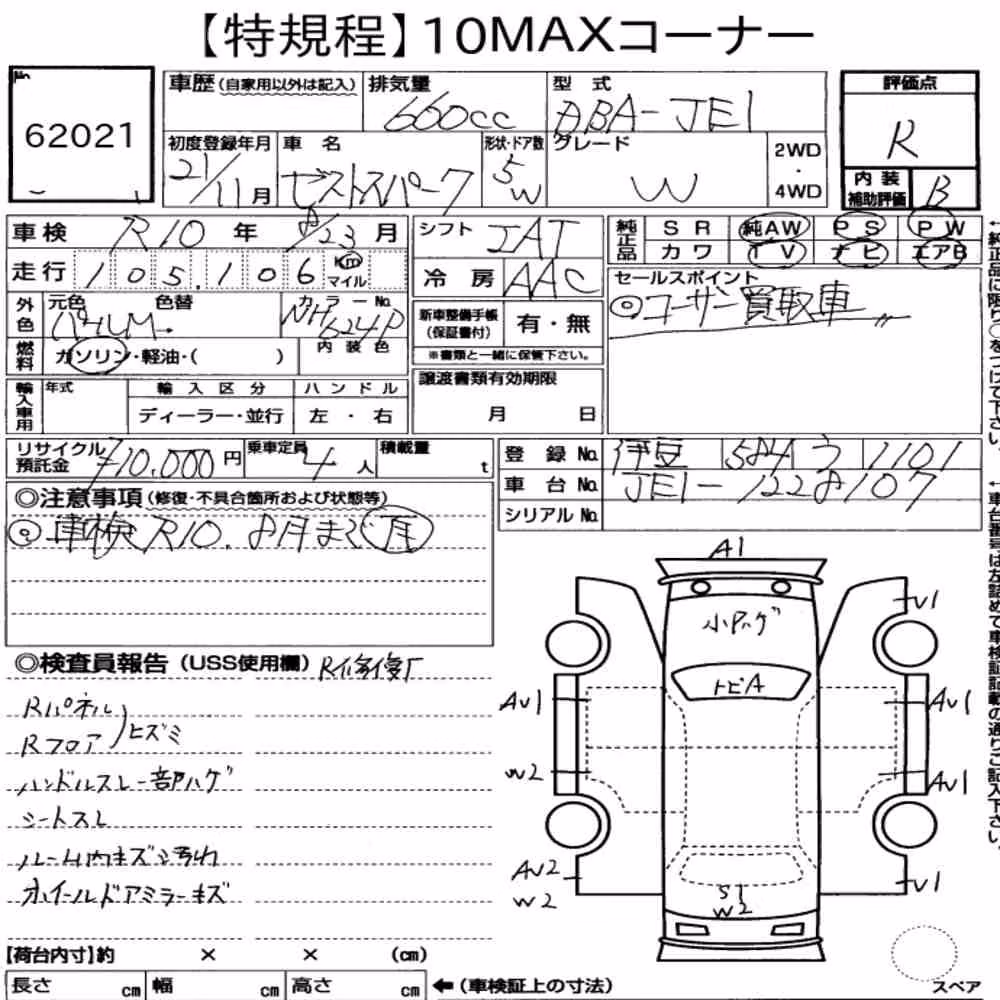 【特規程】10MAXコーナー
No
62021
車歴(自家用以外は記入)
排気量
660cc
型式
DBA-JE1
評価点
R
内装
補助評価
B
初度登録年月
21/11月
車名
ゼストスパーク
形状・ドア数
5
W
グレード
W
2WD
・
4WD
車検
R10年8/23月
走行
105,106
Km
マイル
シフト
IAT
冷房
AAC
純正品
SR 純AW PS PW
カワ TV ナビ エアB
外色
元色
パールM
色替
カラーNo.
NH624P
内装色
燃料
ガソリン・軽油・( )
新車整備手帳
(保証書付)
有・無
※書類と一緒に保管下さい。
セールスポイント
◎ユーザー買取車
輸入車用
年式
輸入区分
ハンドル
ディーラー・並行
左・右
譲渡書類有効期限
月 日
リサイクル
預託金
¥10,000円
乗車定員
4人
積載量
t
登録No.
伊豆 584 う 1101
車台No.
JE1-1228107
シリアルNo.
◎注意事項(修復・不具合箇所および状態等)
◎車検R10.8月まで有
◎検査員報告(USS使用欄)
R修復有
Rパネル
Rフロア
ヒズミ
ハンドルスレ一部ハゲ
シートスレ
ルーム内キズ汚れ
ホイールドアミラーキズ
A1
小Pハゲ
トビA
V1
AV1
AV1
W2
AV1
AV2
W2
S1
W2
V1
【荷台内寸】約 × × (cm)
長さ cm 幅 cm 高さ cm
←(車検証上の寸法)
スペア
←純正品に限り○をつけて下さい。
←車台番号は左詰めで車検証記載の通りご記入下さい。